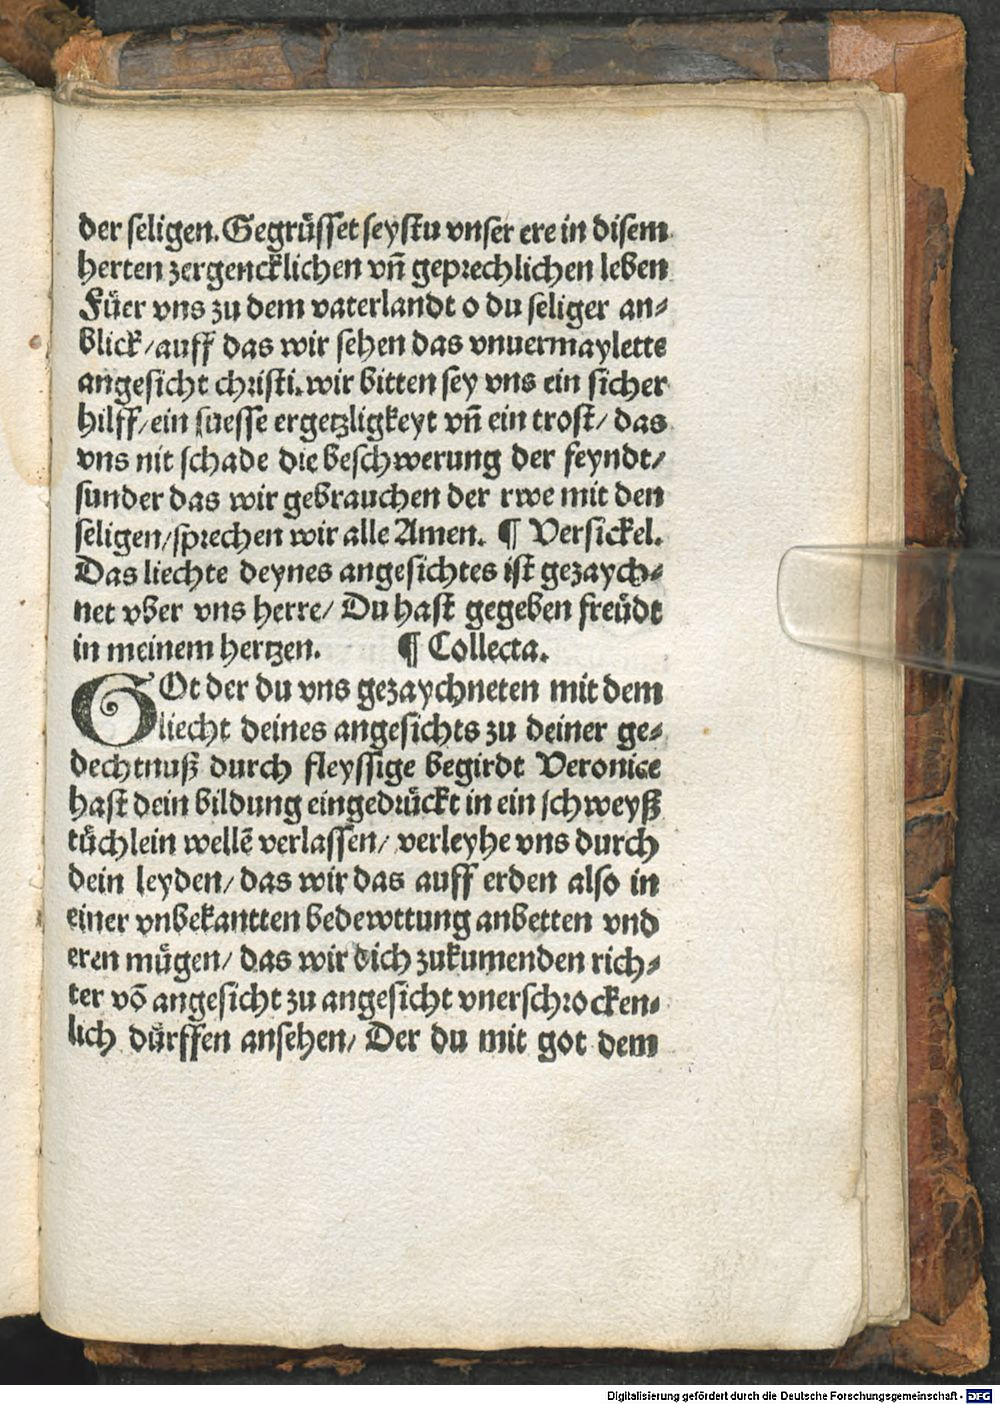 der seligen. Gegrüsset seystu vnser ere in disem
herten zergencklichen vn̄ geprechlichen leben
Füer vns zu dem vaterlandt o du seliger an⸗
blick/auff das wir sehen das vnuermaylette
angesicht christi. wir bitten sey vns ein sicher
hilff/ein suesse ergetzligkeyt vn̄ ein trost/ das
vns nit schade die beschwerung der feyndt/
sunder das wir gebrauchen der rwe mit den
seligen/sprechen wir alle Amen. ¶ Versickel.
Das liechte deynes angesichtes ist gezaych⸗
net vber vns herre/ Du hast gegeben freüdt
in meinem hertzen. ¶ Collecta.
GOt der du vns gezaychneten mit dem
liecht deines angesichts zu deiner ge⸗
dechtnuß durch fleyssige begirdt Veronice
hast dein bildung eingedrückt in ein schweyß
tüchlein wellē verlassen/ verleyhe vns durch
dein leyden/ das wir das auff erden also in
einer vnbekantten bedewttung anbetten vnd
eren mügen/ das wir dich zukumenden rich⸗
ter võ angesicht zu angesicht vnerschrocken⸗
lich dürffen ansehen/ Der du mit got dem
Digitalisierung gefördert durch die Deutsche Forschungsgemeinschaft - DFG